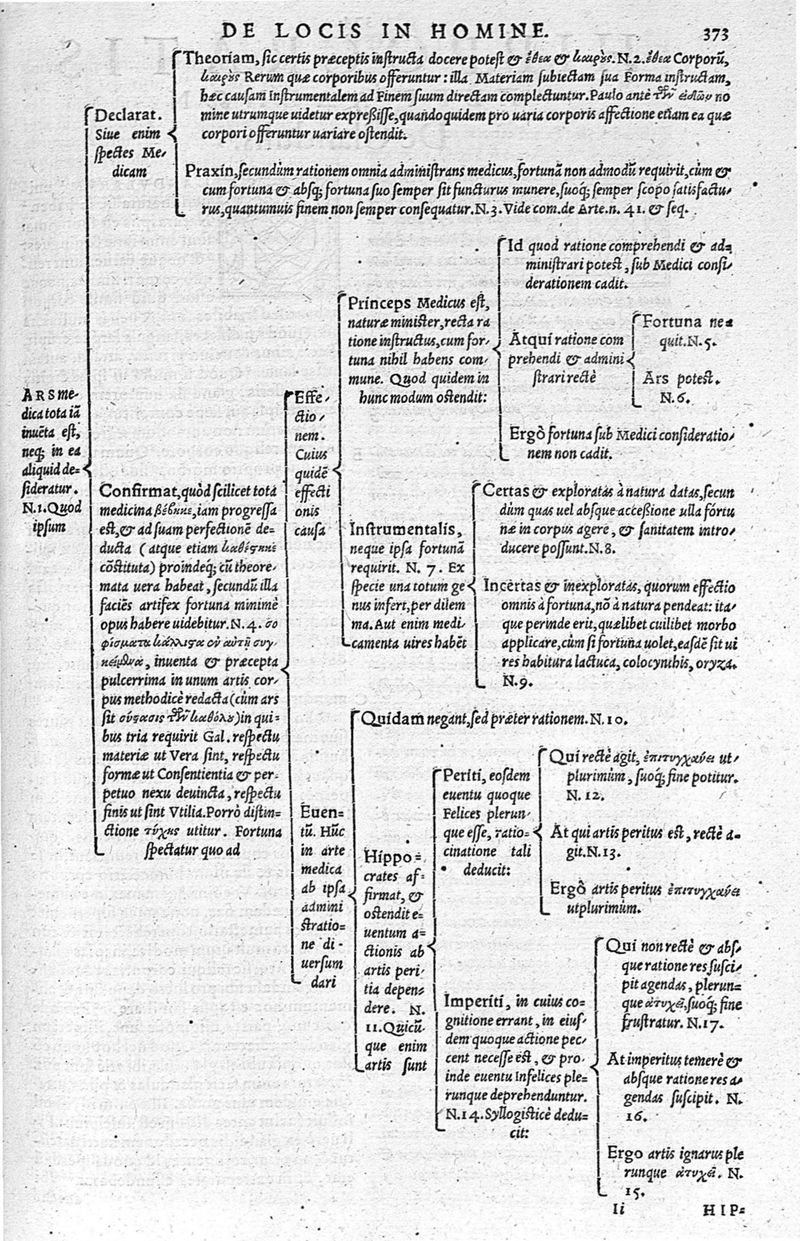 DE LOCIS IN HOMINE.
373
ARS me-
dica tota iã
inuẽta est,
neq; in ea
aliquid de-
sideratur.
N.1. Quod
ipsum
Declarat.
Siue enim
spectes Me-
dicam
Theoriam, sic certis præceptis instructa docere potest & ἔθεα & καιρὸς. N.2. ἔθεα Corporũ,
καιρὸς Rerum quæ corporibus offeruntur: illa Materiam subiectam sua Forma instructam,
hæc causam Instrumentalem ad Finem suum directam complectuntur. Paulo antè τῶν no-
mine utrumque uidetur expreßisse, quandoquidem pro uaria corporis affectione etiam ea quæ
corpori offeruntur uariare ostendit.
Praxin, secundùm rationem omnia administrans medicus, fortunã non admodũ requirit, cùm &
cum fortuna & absq; fortuna suo semper sit functurus munere, suoq; semper scopo satisfactu-
rus, quantumuis finem non semper consequatur. N.3. Vide com. de Arte. n. 41. & seq.
Confirmat, quòd scilicet tota
medicina βέβηκε, iam progressa
est, & ad suam perfectionẽ de-
ducta (atque etiam
cõstituta) proindeq; cũ theore-
mata uera habeat, secundũ illa
faciẽs artifex fortuna minimè
opus habere uidebitur. N.4. σο-
φίσματα
inuenta & præcepta
pulcerrima in unum artis cor-
pus methodicè redacta (cùm ars
sit τῶν καθόλου) in qui-
bus tria requirit Gal. respectu
materiæ ut Vera sint, respectu
formæ ut Consentientia & per-
petuo nexu deuincta, respectu
finis ut sint Vtilia. Porrò distin-
ctione τύχης utitur. Fortuna
spectatur quo ad
Effe-
ctio-
nem.
Cuius
quidẽ
effecti
onis
causa
Princeps Medicus est,
naturæ minister, recta ra
tione instructus, cum for-
tuna nihil habens com-
mune. Quod quidem in
hunc modum ostendit:
Id quod ratione comprehendi & ad-
ministrari potest, sub Medici consi-
derationem cadit.
Atqui ratione com
prehendi & admini
strari rectè
Fortuna ne-
quit. N.5.
Ars potest.
N.6.
Ergò fortuna sub Medici consideratio-
nem non cadit.
Instrumentalis,
neque ipsa fortunã
requirit. N. 7. Ex
specie una totum ge
nus infert, per dilem
ma. Aut enim medi-
camenta uires habẽt
Certas & exploratas à natura datas, secun
dùm quas uel absque acceßione ulla fortu
næ in corpus agere, & sanitatem intro-
ducere possunt. N.8.
Incertas & inexploratas, quorum effectio
omnis à fortuna, nõ à natura pendeat: ita-
que perinde erit, quælibet cuilibet morbo
applicare, cùm si fortuna uolet, easdẽ sit ui
res habitura lactuca, colocynthis, oryza.
N.9.
Euen-
tũ. Hũc
in arte
medica
ab ipsa
admini
stratio-
ne di-
uersum
dari
Quidam negant, sed præter rationem. N.10.
Hippo-
crates af-
firmat, &
ostendit e-
uentum a-
ctionis ab
artis peri-
tia depen-
dere. N.
11. Quicũ-
que enim
artis sunt
Periti, eosdem
euentu quoque
Felices plerun-
que esse, ratio-
cinatione tali
deducit:
Qui rectè agit, ἐπιτυγχάνει ut-
plurimùm, suoq; fine potitur.
N.12.
At qui artis peritus est, rectè a-
git. N.13.
Ergò artis peritus ἐπιτυγχάνει
utplurimùm.
Imperiti, in cuius co-
gnitione errant, in eius-
dem quoque actione pec-
cent necesse est, & pro-
inde euentu Infelices ple-
runque deprehenduntur.
N.14. Syllogisticè dedu-
cit:
Qui non rectè & abs-
que ratione res susci-
pit agendas, plerun-
que ἀτυχεῖ, suoq; fine
frustratur. N.17.
At imperitus temerè &
absque ratione res a-
gendas suscipit. N.
16.
Ergo artis ignarus ple
runque ἀτυχεῖ. N.
15.
Ii
HIP-